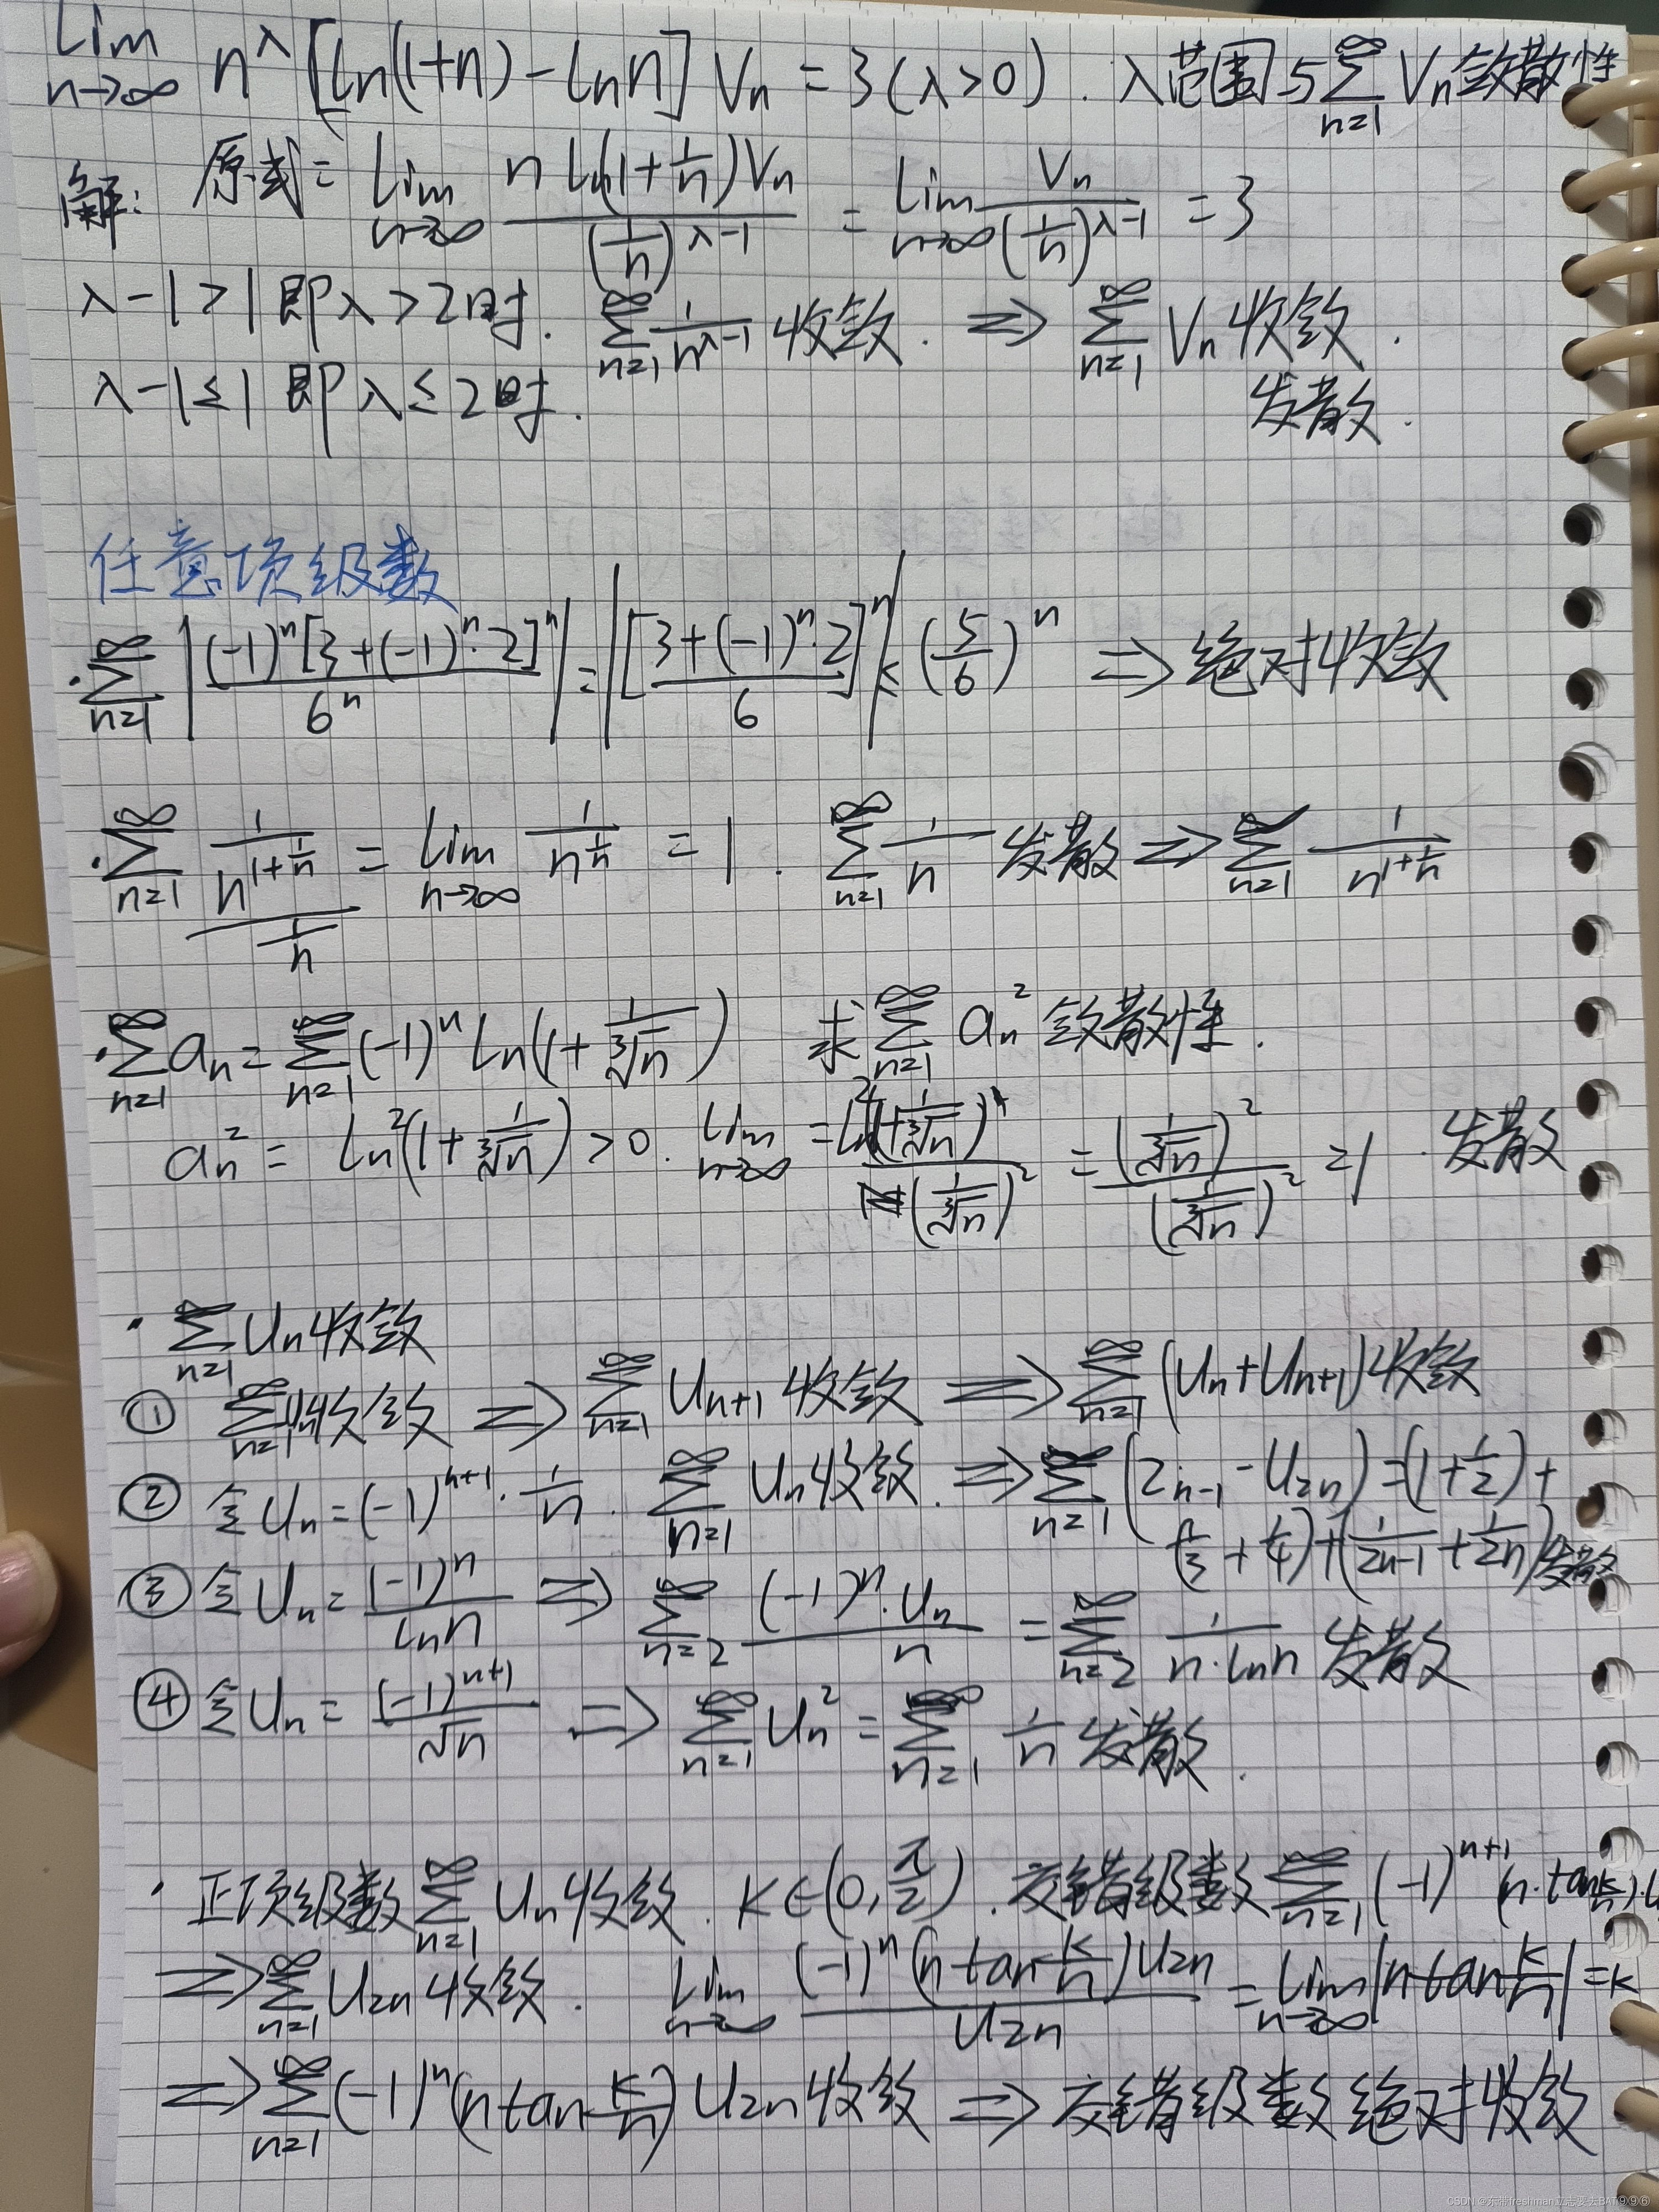 lim n→∞ n^λ [ln(1+n) - ln n] Vn = 3 (λ>0). λ范围与 ∑_{n=1}^∞ Vn 敛散性
解: 原式 = lim n→∞ n ln(1+1/n)Vn / (1/n)^{λ-1} = lim n→∞ Vn / (1/n)^{λ-1} = 3
λ-1>1 即 λ>2时. ∑_{n=1}^∞ 1/n^{λ-1} 收敛. ⇒ ∑_{n=1}^∞ Vn 收敛.
λ-1≤1 即 λ≤2时. 发散.
任意项级数
· ∑_{n=1}^∞ |(-1)^n [3+(-1)^n·2]^n / 6^n| = |[3+(-1)^n·2 / 6]^n| ≤ (5/6)^n ⇒ 绝对收敛
· ∑_{n=1}^∞ (1/n^{1+1/n}) / (1/n) = lim n→∞ 1/n^{1/n} = 1. ∑_{n=1}^∞ 1/n 发散 ⇒ ∑_{n=1}^∞ 1/n^{1+1/n}
· ∑_{n=1}^∞ an = ∑_{n=1}^∞ (-1)^n ln(1+1/∛n) 求 ∑_{n=1}^∞ an² 敛散性.
an² = ln²(1+1/∛n) > 0. lim n→∞ = ln²(1+1/∛n) / (1/∛n)² = (1/∛n)² / (1/∛n)² = 1. 发散
· ∑_{n=1} Un 收敛
① ∑_{n=1}^∞ Un 收敛 ⇒ ∑_{n=1}^∞ Un+1 收敛 ⇒ ∑_{n=1}^∞ (Un+Un+1) 收敛
② 令 Un = (-1)^{n+1}·1/n. ∑_{n=1}^∞ Un 收敛. ⇒ ∑_{n=1}^∞ (2n-1 - U2n) = (1+1/2)+
(1/3+1/4)+(1/2n-1 + 1/2n) 发散
③ 令 Un = (-1)^n / ln n ⇒ ∑_{n=2}^∞ (-1)^n·Un / n = ∑_{n=2}^∞ 1/n·ln n 发散
④ 令 Un = (-1)^{n+1} / √n ⇒ ∑_{n=1}^∞ Un² = ∑_{n=1}^∞ 1/n 发散.
· 正项级数 ∑_{n=1}^∞ Un 收敛. K∈(0, π/2). 交错级数 ∑_{n=1}^∞ (-1)^{n+1} (n·tan k/n)·U
⇒ ∑_{n=1}^∞ U2n 收敛. lim n→∞ (-1)^n (n tan k/n) U2n / U2n = lim n→∞ |n tan k/n| = k
⇒ ∑_{n=1}^∞ (-1)^n (n tan k/n) U2n 收敛 ⇒ 交错级数绝对收敛